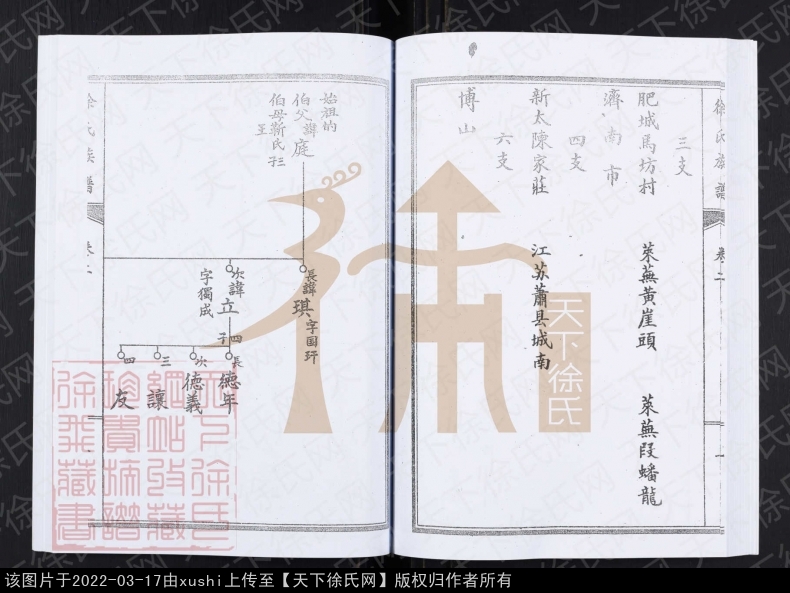 徐氏族譜
卷二
一
三支
肥城馬坊村 萊蕪黃崖頭 萊蕪段蟠龍
濟南市
四支
新太陳家莊 江苏蕭县城南
六支
博山
始祖的
伯父諱庭
伯母靳氏子三
至
長諱琪字国玕
次諱立
字獨成
子四
長德年
次德義
三讓
四友
徐氏族譜
卷二
天下徐氏
天下徐氏网
该图片于2022-03-17由xushi上传至【天下徐氏网】版权归作者所有